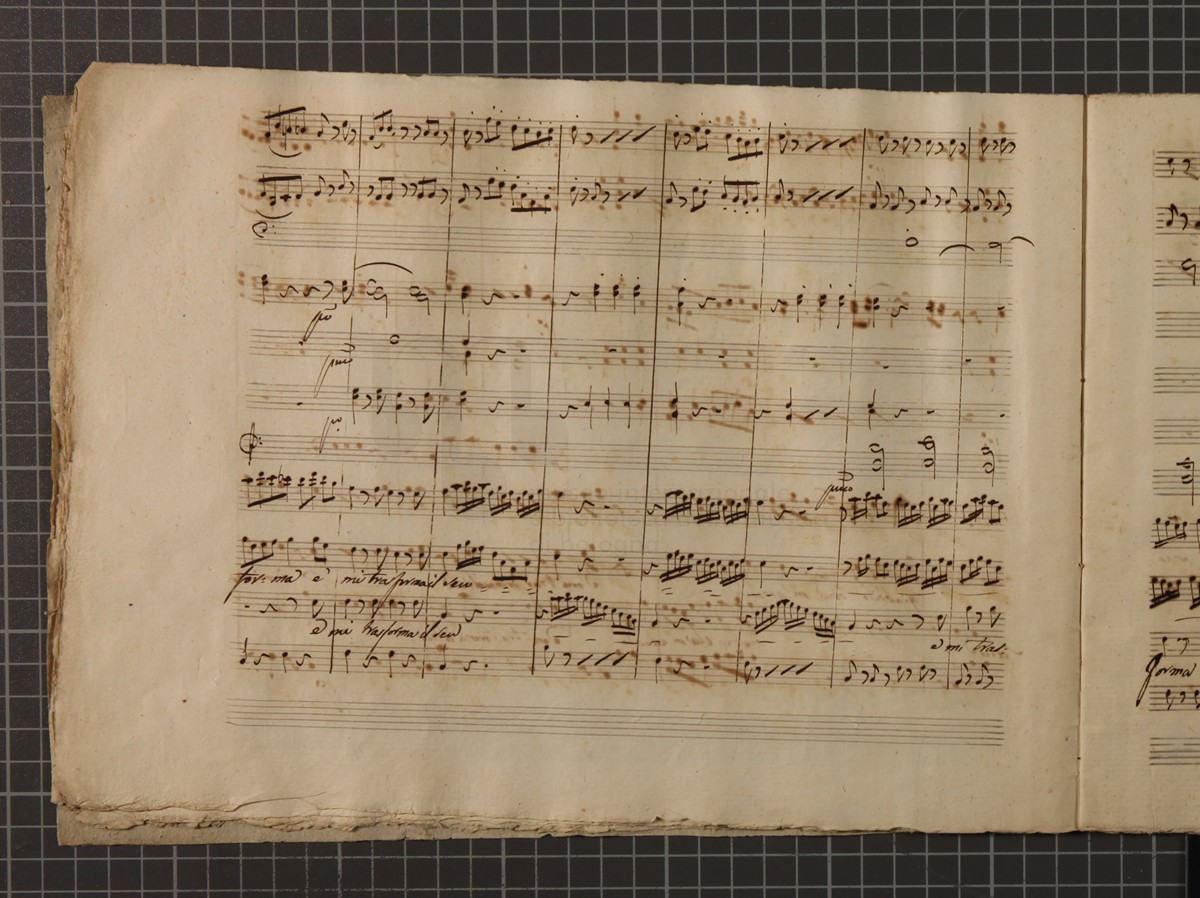 pº
pmo
pº
pmo
for: ma e mi trasforma il seu
e mi trasforma il seu
e mi tras:
forma